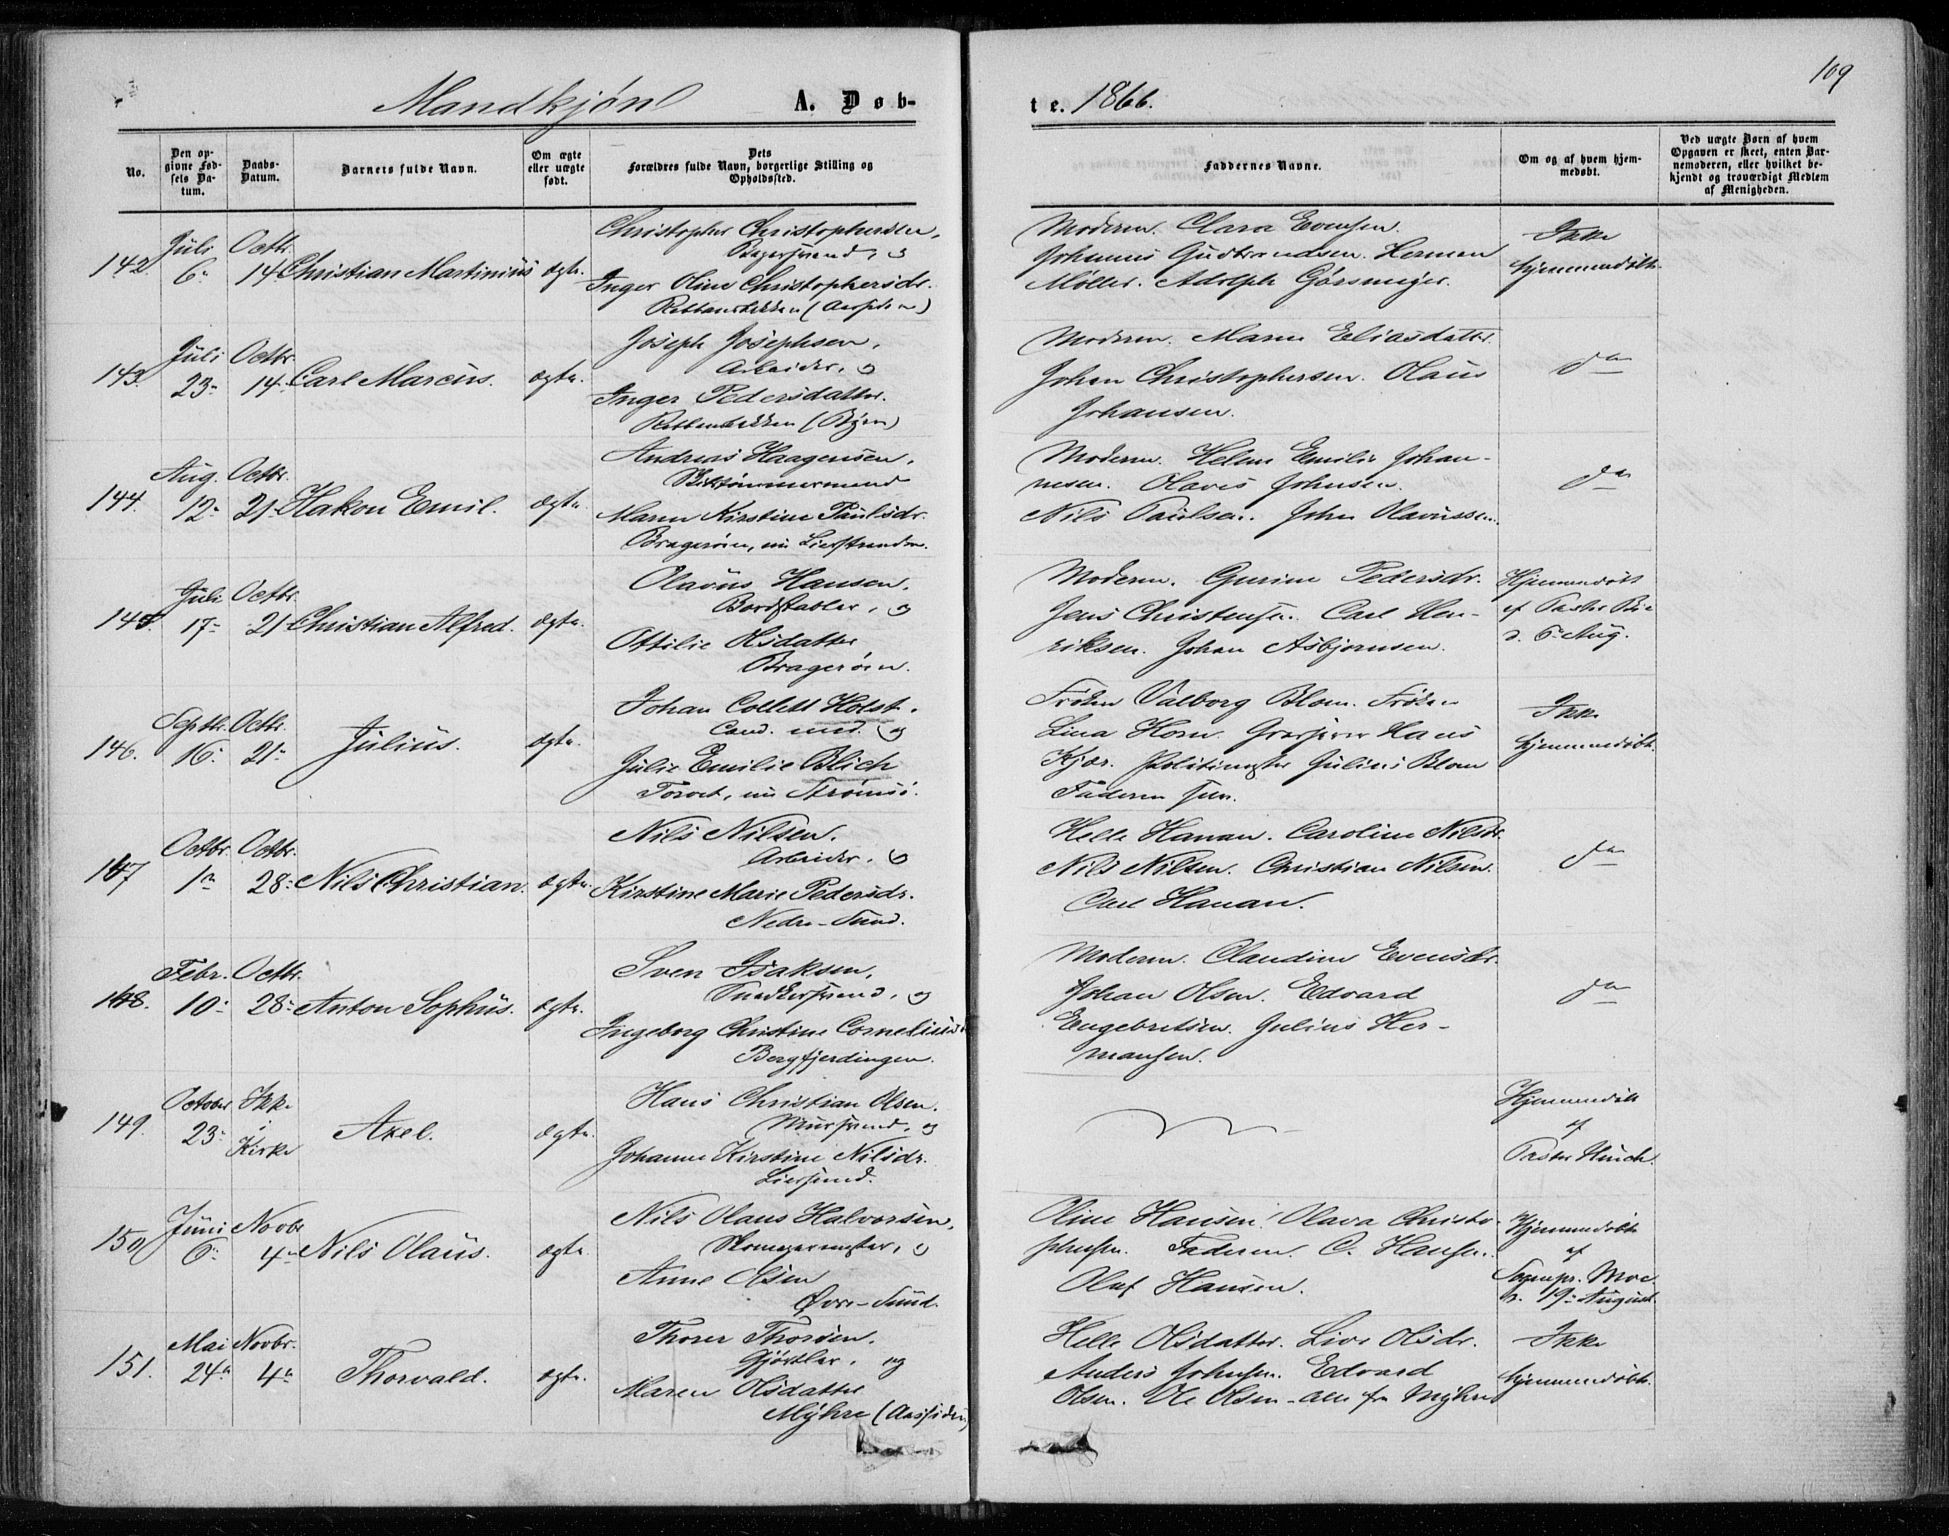 109
Mandkjøn A. Døb-
te. 1866.
No.
Den op-
givne Fød-
sels Da-
tum.
Daabs-
Datum.
Barnets fulde Navn.
Om ægte
eller uægte
født.
Dets
Forældres fulde Navn, borgerlige Stilling og
Opholdssted.
Faddernes Navne.
Om og af hvem hjem-
medøbt.
Ved uægte Børn af hvem
Opgaven er skeet, enten Bar-
nemoderen, eller hvilket be-
kjendt og troværdigt Medlem
af Menigheden.
142. Juli 6. Octbr. 14. Christian Martinius ægte.
Christopher Christophersen,
Bagersvend, og
Inger Oline Christophersdr.
(Aassiden)
Moderen. Clara Evensen.
Johannes Gudbrandsen. Herman
Møller. Adolph
Ikke
hjemmedøbt.
143. Juli 23. Octbr. 14. Carl Marcus. ægte.
Joseph Josephsen,
Arbeider, og
Inger Pedersdatter.
(Byen)
Moderen. Maren Eliasdatter.
Johan Christophersen. Olaus
Johansen.
do
144. Aug. 12. Octbr. 21. Hakon Emil. ægte.
Andreas Haagensen,
Skibstømmermand
Maren Kirstine Paulsdr.
Bragerøen, nu Lierstranden.
Moderen. Helene Emilie Johan-
nesen. Olaves Johnsen.
Nils Paulsen. John Olavussen.
do
145. Juli 17. Octbr. 21. Christian Alfred. ægte.
Olavus Hansen,
Bordstabler, og
Ottilie Olsdatter
Bragerøen.
Moderen. Gurine Pedersdr.
Jens Christensen. Carl Hen-
riksen. Johan Asbjørnsen.
Hjemmedøbt
af Pastor
d. 6. Aug.
146. Septbr. 16. Octbr. 21. Julius. ægte.
Johan Collett Holst.
Cand. med. og
Julie Emilie Blich
Torvet, nu Strømsø.
Frøken Valborg Blom. Frøken
Lina Horn. Grosserer Hans
Kjær. Politimester Julius Blom
Faderen selv.
Ikke
hjemmedøbt.
147 Octbr. 1. Octbr. 28. Nils Christian. ægte.
Nils Nilsen.
Arbeider, og
Kirstine Marie Pedersdr.
Nedre-Sund.
Helle Hanan. Caroline Nilsdr.
Nils Nilsen. Christian Nilsen.
Carl Hanan.
do
148. Febr. 10. Octbr. 28. Anton Sophus. ægte.
Sven Isaksen,
Snedkersvend, og
Ingeborg Christine
Bergfjerdingen.
Moderen. Claudine Evensdr.
Johan Olsen. Edvard
Engebretsen. Julius Her-
mansen.
do
149. October 23. Ikke i Kirke Axel. ægte.
Hans Christian Olsen.
Mursvend, og
Johanne Kirstine Nilsdr.
Hjemmedøbt
af
Pastor
150. Juni 6. Novbr 4. Nils Olaus. ægte.
Nils Olaus Halvorsen,
Skomagermester, og
Anne Olsen
Øvre-Sund.
Oline Hansen. Olava Christo-
phersen. Faderen. C. Hansen.
Oluf Hansen.
Hjemmedøbt
af
Sognepr. Moe
d. 19. August.
151. Mai 24. Novbr. 4. Thorvald. ægte.
Thorer Thorsen.
Gjørtler, og
Maren Olsdatter
Myhre (Aassiden)
Helle Olsdatter. Live Olsdr.
Anders Johnsen. Edvard
Olsen. Ole Olsen - alle fra Myhre
Ikke
hjemmedøbt.